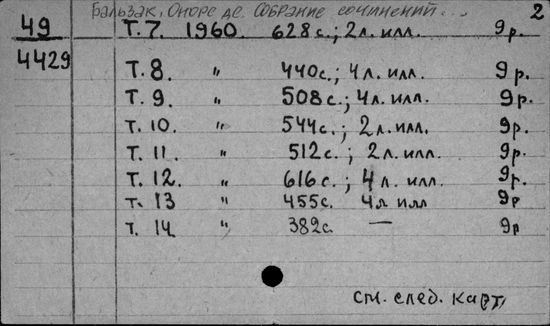 Бальзак, Оноре де. Собрание сочинений... 2
49 Т. 7. 1960. 628 с.; 2 л. илл. 9 р.
4429
Т. 8. " 440 с.; 4 л. илл. 9 р.
Т. 9. " 508 с.; 4 л. илл. 9 р.
Т. 10. " 544 с.; 2 л. илл. 9 р.
Т. 11. " 512 с.; 2 л. илл. 9 р.
Т. 12. " 616 с.; 4 л. илл. 9 р.
т. 13 " 455 с. 4 л илл 9 р
т. 14 " 382 с. — 9 р
см. след. карт.